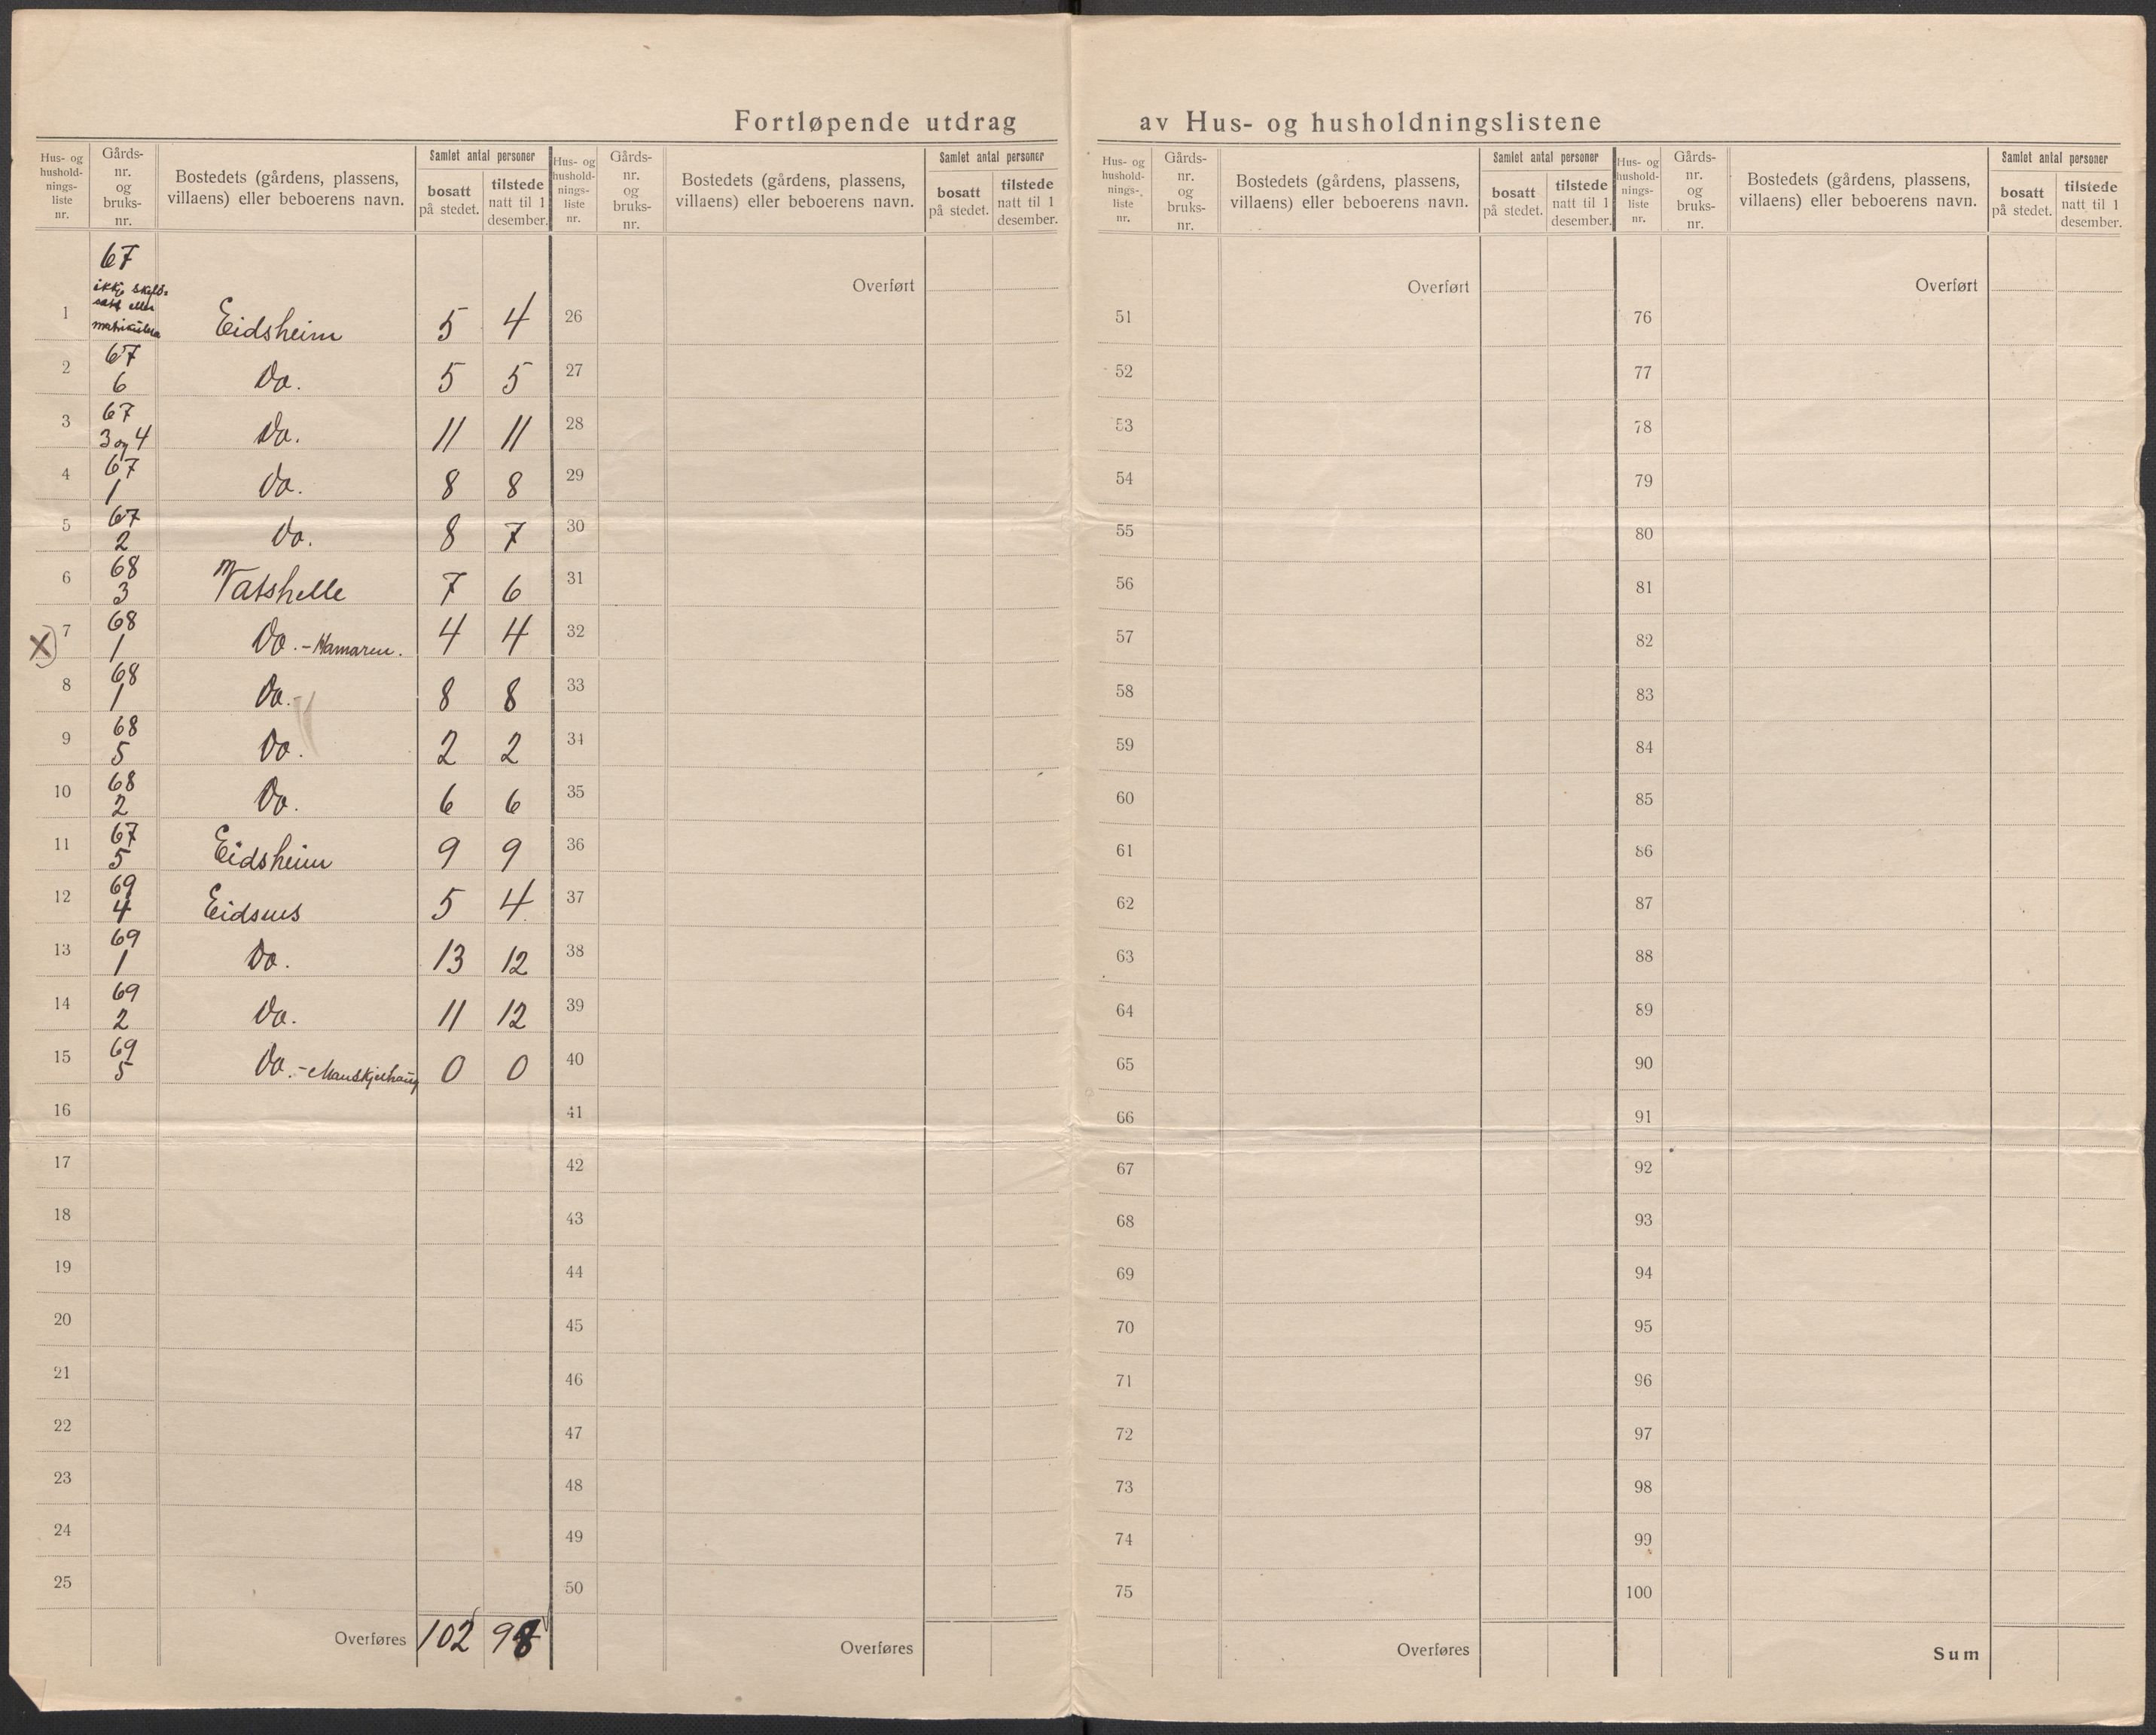 Fortløpende utdrag av Hus- og husholdningslistene
Hus- og hushold- nings- liste nr.
Gårds- nr. og bruks- nr.
Bostedets (gårdens, plassens, villaens) eller beboerens navn.
Samlet antal personer
bosatt på stedet.
tilstede natt til 1 desember.
Hus- og hushold- nings- liste nr.
Gårds- nr. og bruks- nr.
Bostedets (gårdens, plassens, villaens) eller beboerens navn.
Samlet antal personer
bosatt på stedet.
tilstede natt til 1 desember.
Hus- og hushold- nings- liste nr.
Gårds- nr. og bruks- nr.
Bostedets (gårdens, plassens, villaens) eller beboerens navn.
Samlet antal personer
bosatt på stedet.
tilstede natt til 1 desember.
Hus- og hushold- nings- liste nr.
Gårds- nr. og bruks- nr.
Bostedets (gårdens, plassens, villaens) eller beboerens navn.
Samlet antal personer
bosatt på stedet.
tilstede natt til 1 desember.
1 67 ikkje eller Eidsheim 5 4
2 67 6 Do. 5 5
3 67 3 og 4 Do. 11 11
4 67 1 Do. 8 8
5 67 2 Do. 8 7
6 68 3 Vatshelle 7 6
X) 7 68 1 Do. - Hamaren. 4 4
8 68 1 Do. - 8 8
9 68 5 Do. 2 2
10 68 2 Do. 6 6
11 67 5 Eidsheim 9 9
12 69 4 Eidsnes 5 4
13 69 1 Do. 13 12
14 69 2 Do. 11 12
15 69 5 Do. - 0 0
16
17
18
19
20
21
22
23
24
25
Overføres 102 98
Overført
26
27
28
29
30
31
32
33
34
35
36
37
38
39
40
41
42
43
44
45
46
47
48
49
50
Overføres
Overført
51
52
53
54
55
56
57
58
59
60
61
62
63
64
65
66
67
68
69
70
71
72
73
74
75
Overføres
Overført
76
77
78
79
80
81
82
83
84
85
86
87
88
89
90
91
92
93
94
95
96
97
98
99
100
Sum